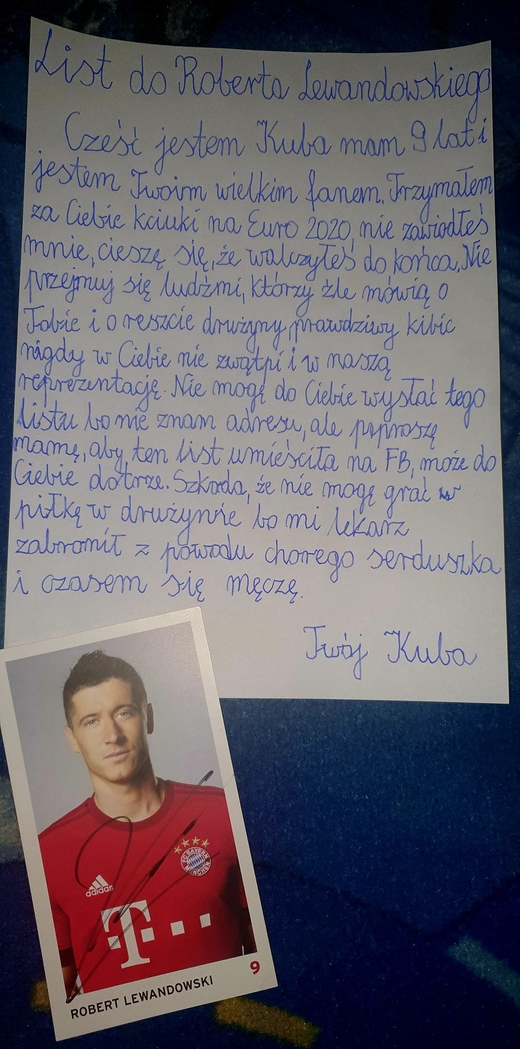 List do Roberta Lewandowskiego
Cześć jestem Kuba mam 9 lat i
jestem Twoim wielkim fanem. Trzymałem
za Ciebie kciuki na Euro 2020, nie zawiodłeś
mnie, cieszę się, że walczyłeś do końca. Nie
przejmuj się ludźmi, którzy źle mówią o
Tobie i o reszcie drużyny, prawdziwy kibic
nigdy w Ciebie nie zwątpi i w naszą
reprezentację. Nie mogę do Ciebie wysłać tego
listu bo nie znam adresu, ale poproszę
mamę, aby ten list umieściła na FB, może do
Ciebie dotrze. Szkoda, że nie mogę grać w
piłkę w drużynie bo mi lekarz
zabronił z powodu chorego serduszka
i czasem się męczę.
Twój Kuba
adidas
FC BAYERN
MÜNCHEN
T
ROBERT LEWANDOWSKI
9